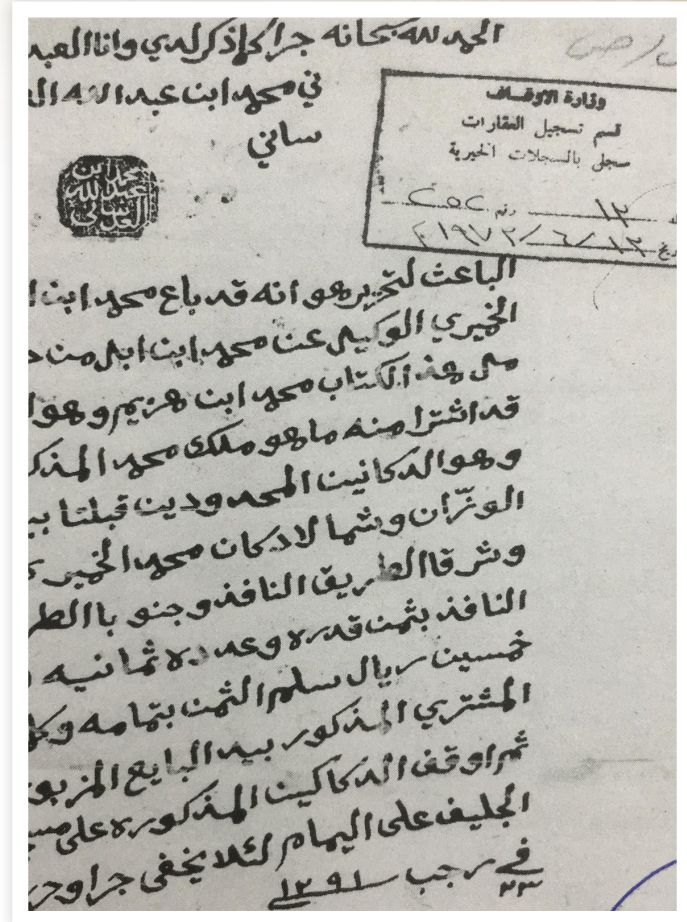 الحمد لله سبحانه جرا كلما ذكر لدي وانا العبد
ني محمد ابن عبد الله
ساني
وزارة الاوقاف
قسم تسجيل العقارات
سجل بالسجلات الخيرية
١٢ رقم ٢٥٢
١٢/٦/١٩٧٢
الباعث لتحريره هو انه قد باع محمد ابن
الخميري الوكيل عن محمد ابن ابل من
هذ الكتاب محمد ابن هزيم وهو
قد اشترا منه ما هو ملك محمد المذكـ
وهو الدكانين المحدودين قبلتا بيـ
الوزّان وشمالا دكان محمد الخميري
وشرقا الطريق النافذ وجنوبا الطر
النافذ بثمن قدره وعدده ثمانيه
خمسين ريال سلم الثمن بتمامه وكـ
المشتري المذكور بيد البايع المزبو
ثم اوقف الدكاكين المذكوره على مسـ
الجليف على اليمام لئلا يخفى جرا وحر
في رجب ١٢٩١
٢٣